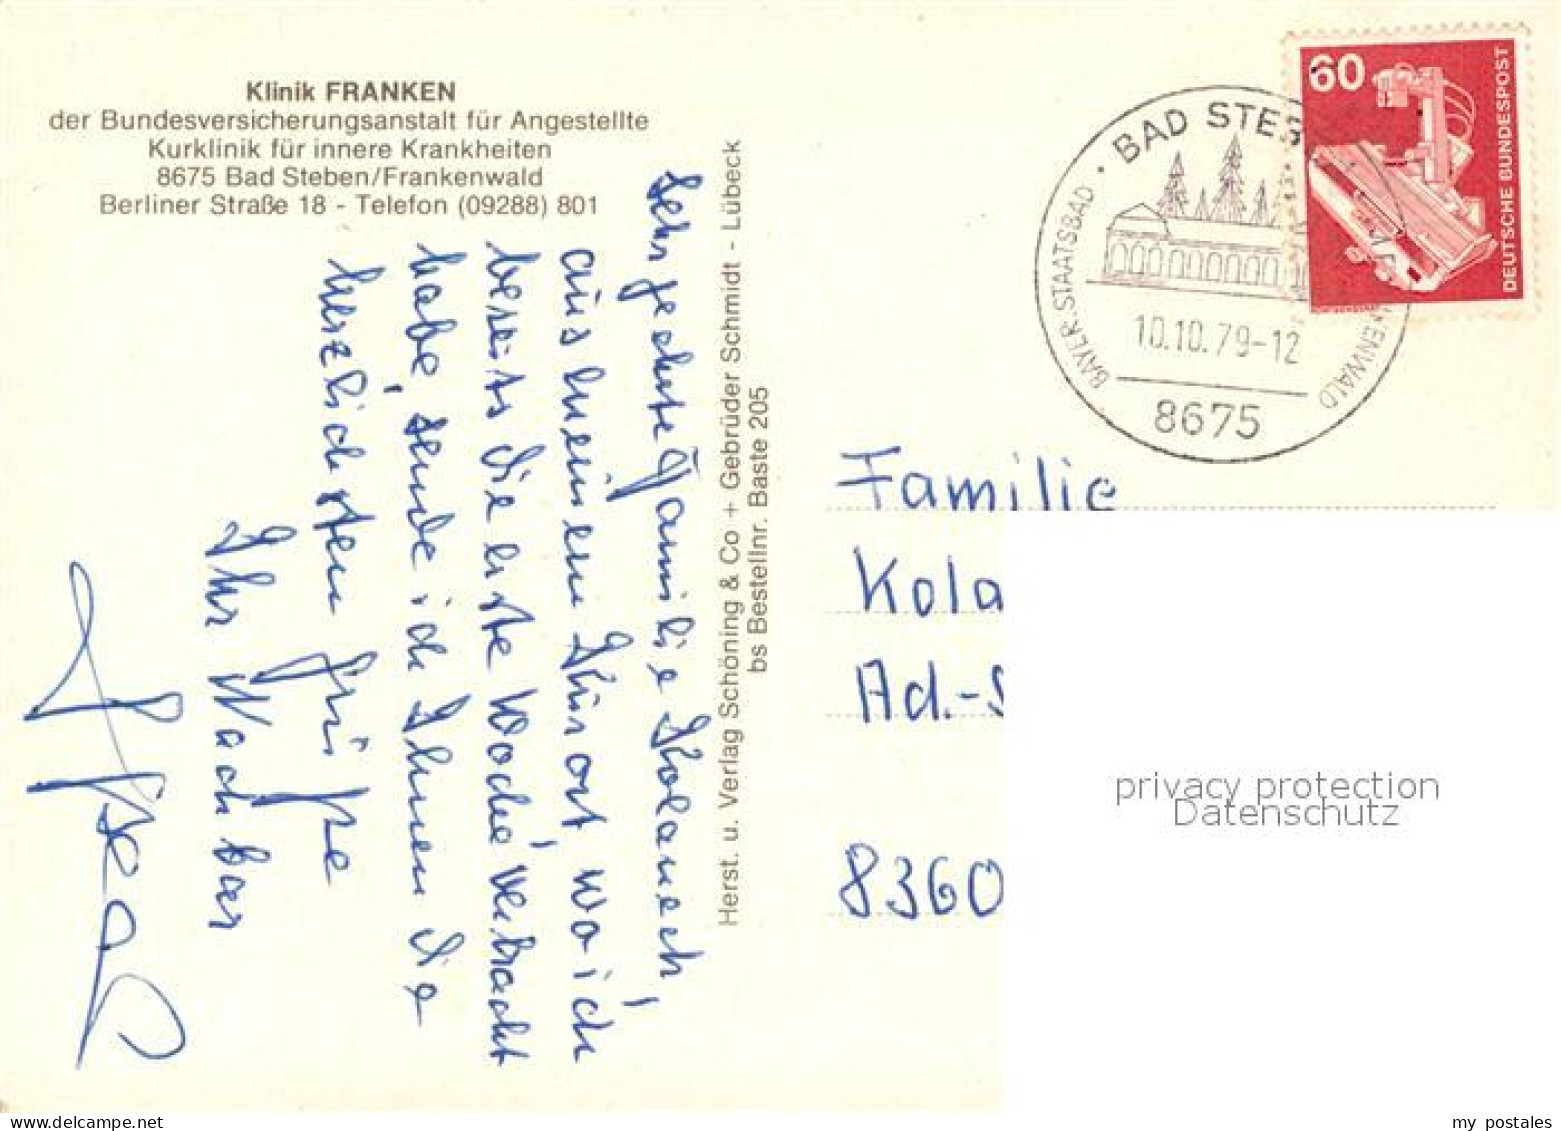 Klinik FRANKEN
der Bundesversicherungsanstalt für Angestellte
Kurklinik für innere Krankheiten
8675 Bad Steben/Frankenwald
Berliner Straße 18 - Telefon (09288) 801
Sehr geehrte Familie Kolanech,
aus meinem Kurort, wo ich
bereits die erste Woche verbracht
habe, sende ich Ihnen die
herzlichsten Grüße
Ihr Nachbar
Herst. u. Verlag Schöning & Co + Gebrüder Schmidt - Lübeck
bs Bestellnr. Baste 205
BAD STEB
BAYER. STAATSBAD
10.10.79-12
8675
60
DEUTSCHE BUNDESPOST
Familie
Kola
Ad.-S
8360
privacy protection
Datenschutz
my postales